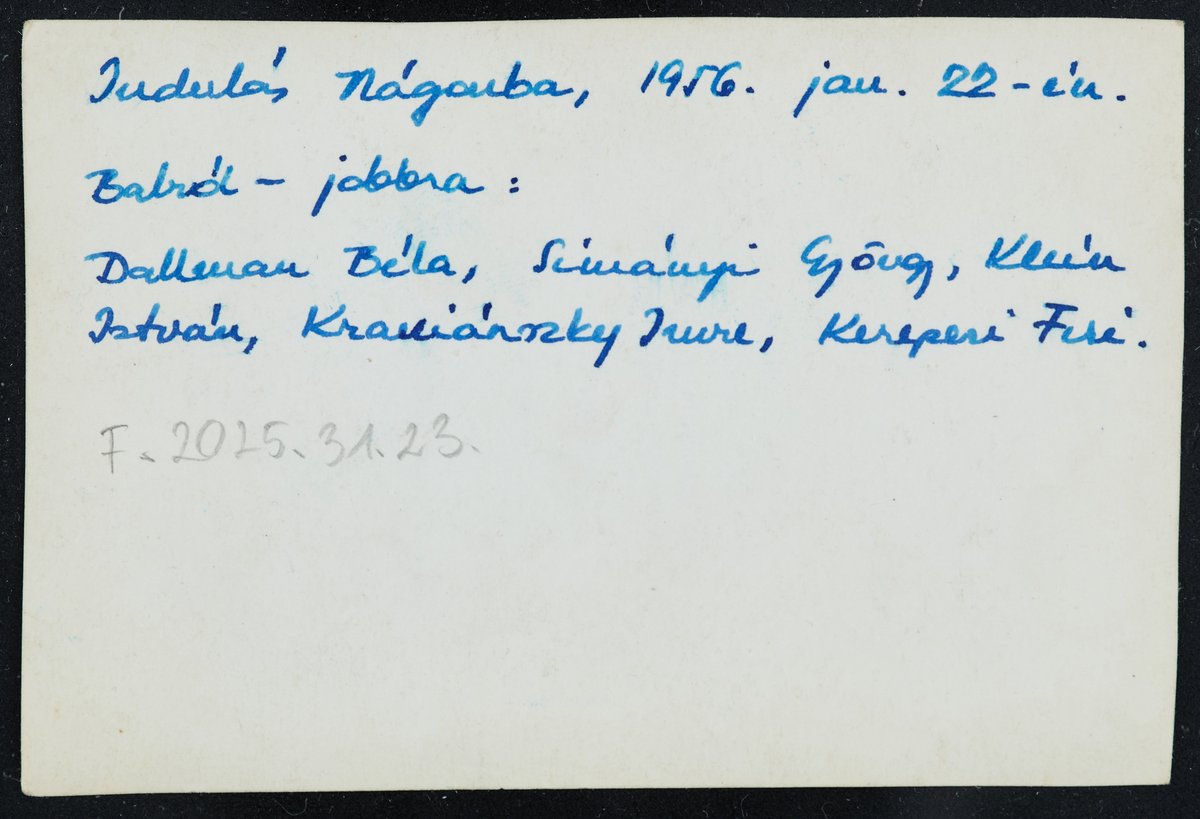 Indulás Nágocsba, 1956. jan. 22-én.
Balról - jobbra :
Dallman Béla, Simányi György, Klein
István, Imre, Kerepesi Feri.
F. 2025.31.23.